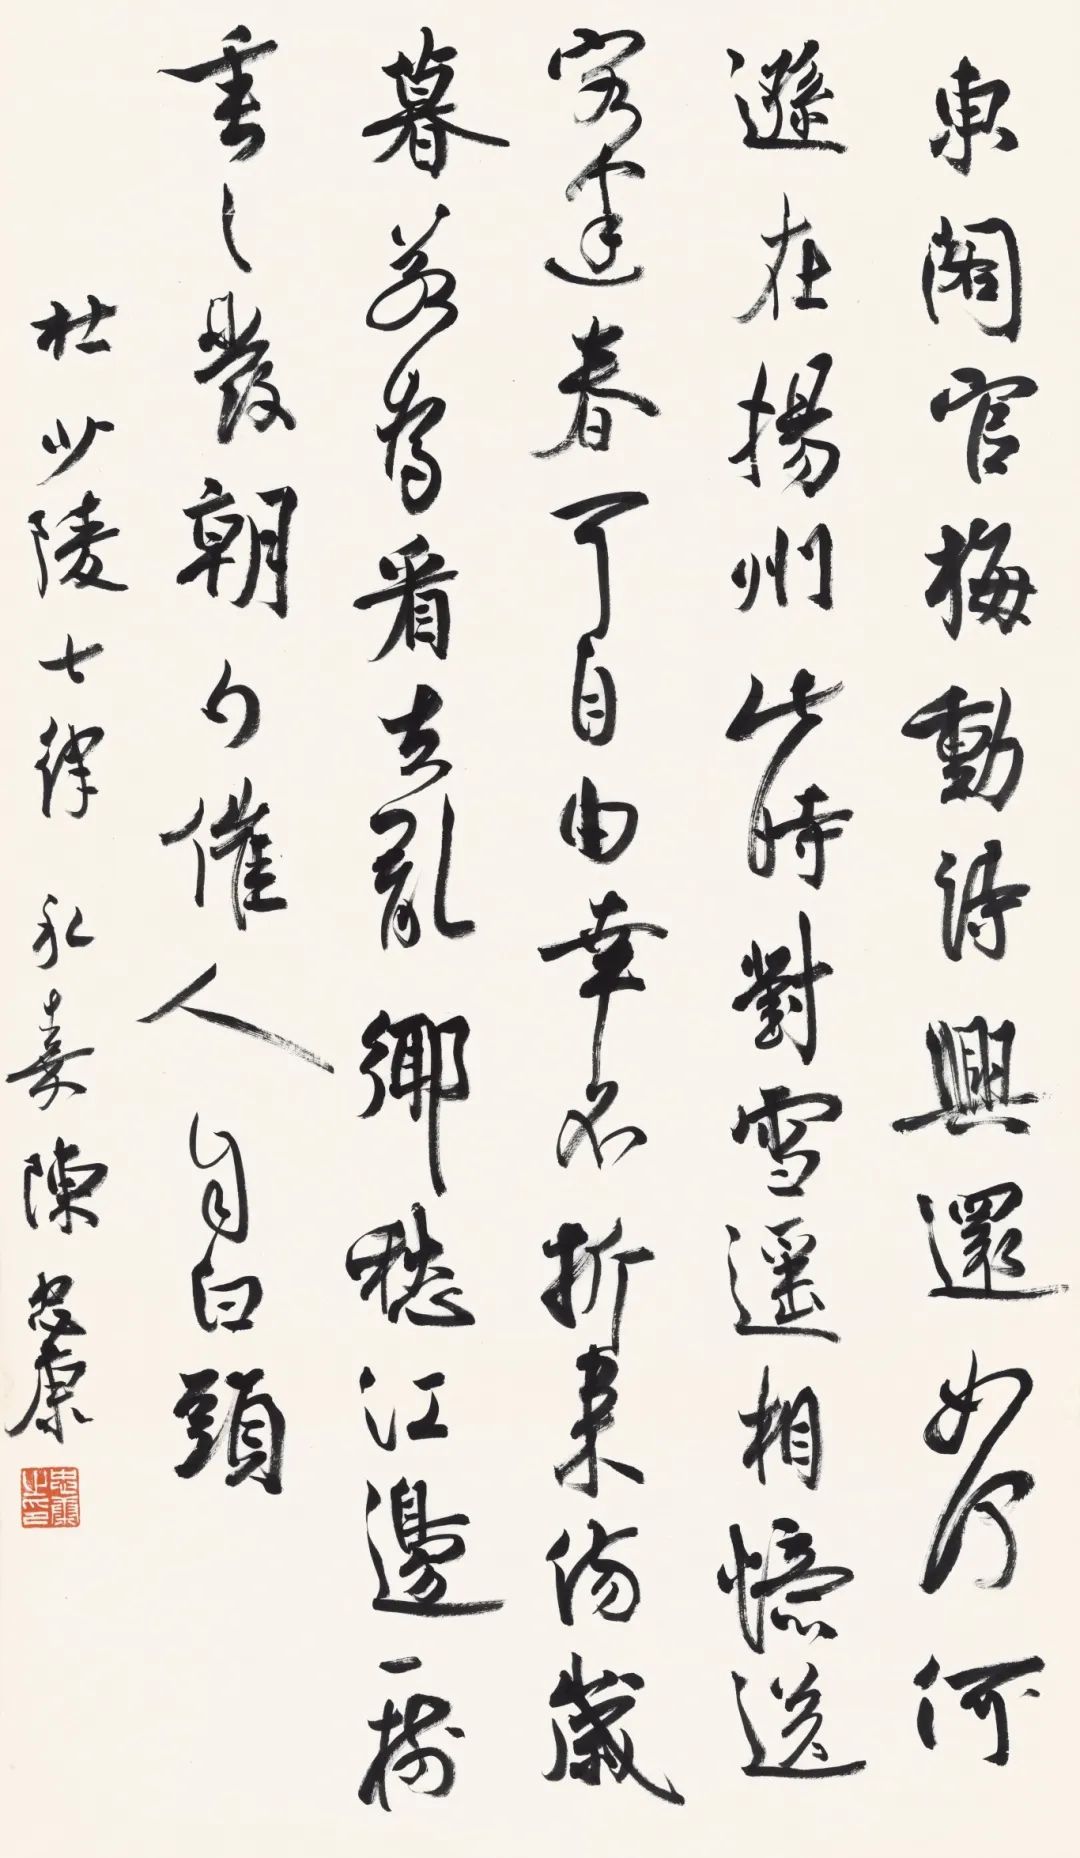 東閣官梅動詩興還如何何
遜在揚州此時對雪遙相憶送
客逢春可自由幸不折來傷歲
暮若為看去亂鄉愁江邊一樹
垂々發朝夕催人自白頭
杜少陵七律 永嘉陳忠康
忠康之印